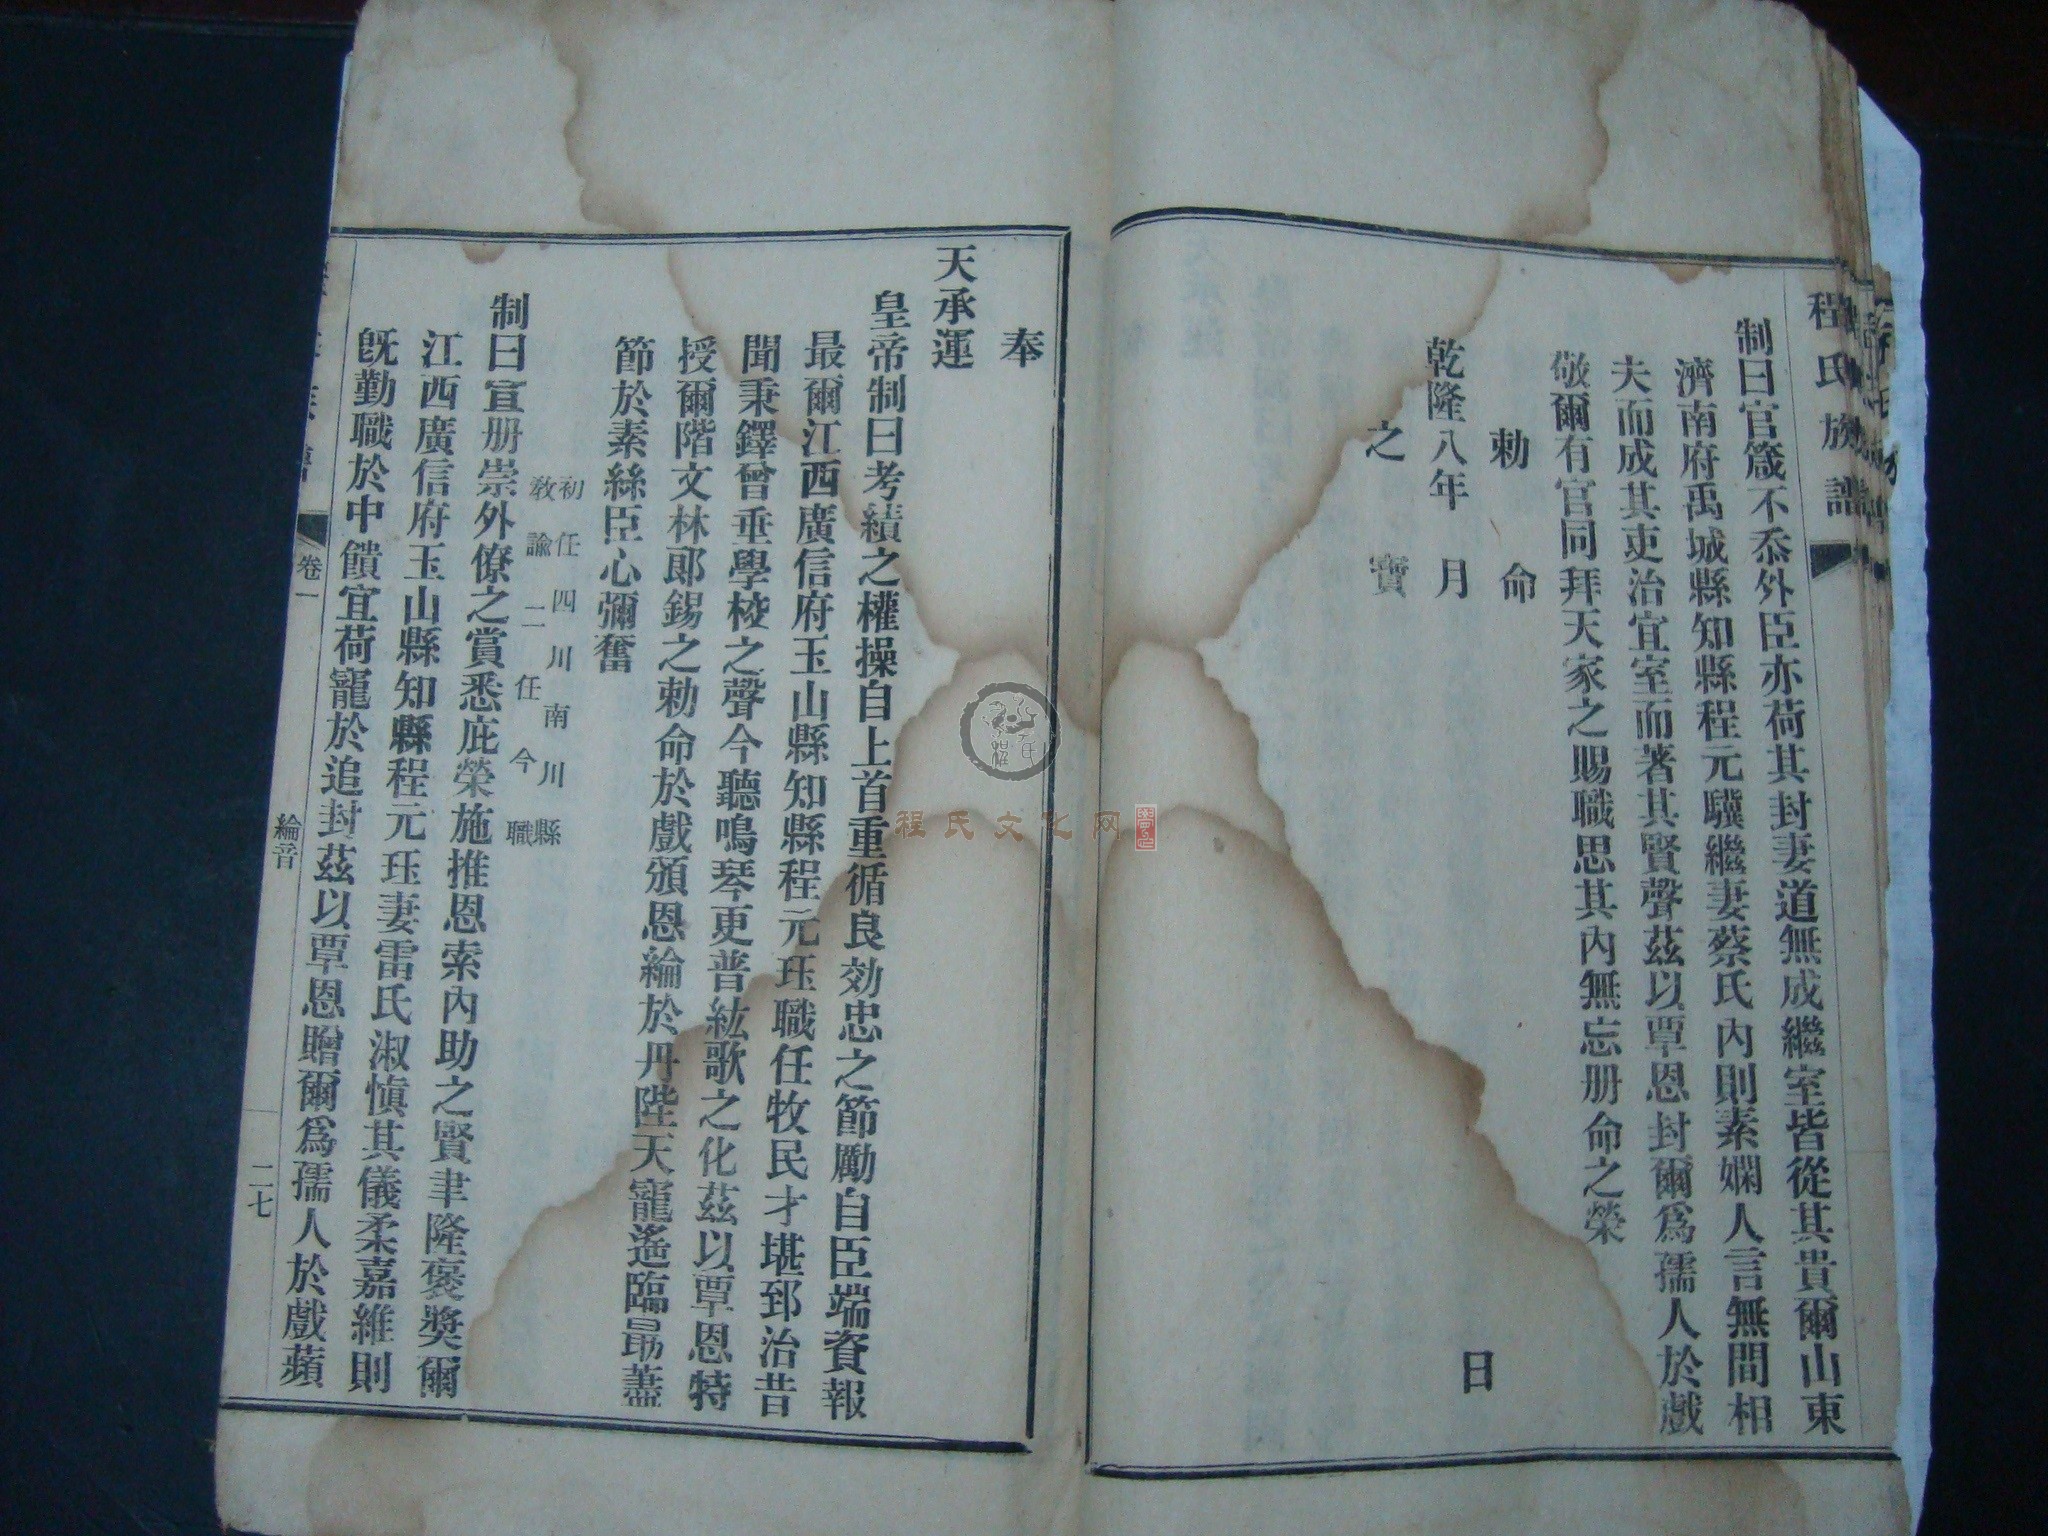 程氏族譜
制曰官箴不忝外臣亦荷其封妻道無成繼室皆從其貴爾山東
濟南府禹城縣知縣程元驥繼妻蔡氏內則素嫻人言無間相
夫而成其吏治宜室而著其賢聲茲以覃恩封爾爲孺人於戲
敬爾有官同拜天家之賜職思其內無忘册命之榮
勅命
乾隆八年 月 日
之寶
奉
天承運
皇帝制曰考績之權操自上首重循良効忠之節勵自臣端資報
最爾江西廣信府玉山縣知縣程元珏職任牧民才堪郅治昔
聞秉鐸曾垂學校之聲今聽鳴琴更普紘歌之化茲以覃恩特
授爾階文林郞錫之勅命於戲頒恩綸於丹陛天寵遙臨勗藎
節於素絲臣心彌奮
初任四川南川縣
敎諭 二任今職
制曰宣册崇外僚之賞悉庇榮施推恩索內助之賢聿隆褒奬爾
江西廣信府玉山縣知縣程元珏妻雷氏淑愼其儀柔嘉維則
旣勤職於中饋宜荷寵於追封茲以覃恩贈爾爲孺人於戲蘋
卷一
綸音
二七
程氏文化网